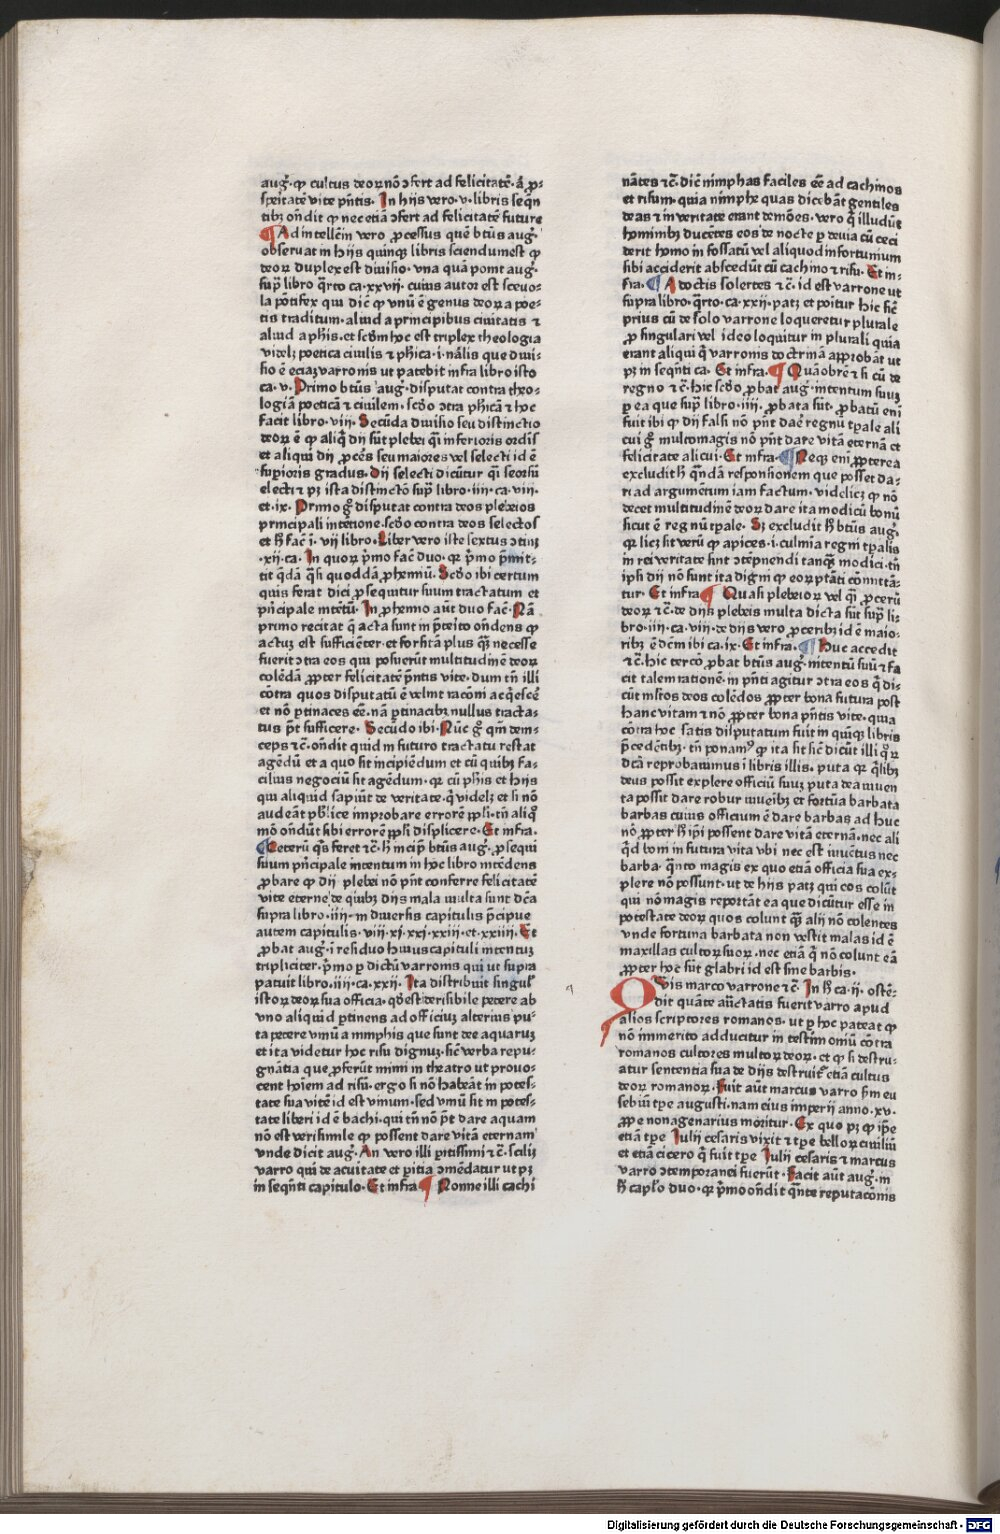 augꝰ. ꝙ cultus deoꝝ nō ↄfert ad felicitatē. ⁊ ꝓ-
speritatē vite pn̄tis. In hijs vero .v. libris seqn̄
tibꝫ on̄dit ꝙ nec etiā ↄfert ad felicitatē future
¶ Ad intellc̄m vero ꝓcessus quē btūs augꝰ
obseruat in hijs quinqꝫ libris sciendum est ꝙ
deoꝝ duplex est diuisio. vna quā ponit augꝰ.
sup̄ libro qͣrto ca. xxvij. cuius autor est sceuo-
la pōtifex qui dic̄ ꝙ vnū ē genus deoꝝ a poe-
tis traditum. aliud a principibus ciuitatis ⁊
aliud a ph̄is. et scd̄m hoc est triplex theologia
videlꝫ poetica ciuilis ⁊ ph̄ica .i. nālis que diui-
sio ē eciaꝫ varronis ut patebit infra libro isto
ca. v. Primo btūs augꝰ disputat contra theo-
logiā poeticā ⁊ ciuilem. scd̄o ↄtra ph̄icā ⁊ hoc
facit libro .viij. Secūda diuisio seu distinctio
deoꝝ ē ꝙ aliqͥ dij sūt plebei qͥ inferioris ordīs
et aliqui dij ꝓcēs seu maiores vel selecti id ē
suꝑioris gradus. Dij selecti dicūtur qͥ seorsū
electi ⁊ pꝫ ista distinctō sup̄ libro .iiij. ca. viij.
et .ix. Primo gͦ disputat contra deos plebeios
principali intētione. scd̄o contra deos selectos
et ħ fac̄ .i. vij libro. Liber vero iste sextus ↄtinꝫ
.xij. ca. In quoꝝ pͥmo fac̄ duo. qꝛ pͥmo pͥmit-
tit qͣdā qͣsi quoddā ꝓhemiū. Scd̄o ibi certum
quis ferat dici ꝓsequitur suum tractatum et
pͥncipale intētū. In ꝓhemio aūt duo fac̄. Nā
primo recitat qͥ acta sunt in pͥterito on̄dens ꝙ
actuꝫ est sufficiēter. et forsitā plus qͣꝫ necesse
fuerit ↄtra eos qui posuerūt multitudinē deoꝝ
colēdā ꝓpter felicitatē pn̄tis vite. dum tn̄ illi
cōtra quos disputatū ē velint racōni acqͥescē
et nō ꝑtinaces eē. nā ꝑtinacibꝫ nullus tracta-
tus pt̄ sufficere. Secūdo ibi. Nūc gͦ qm̄ dein-
ceps ⁊c̄. on̄dit quid in futuro tractatu restat
agēdū et a quo sit incipiēdum et cū quibꝫ fa-
cilius negociū sit agēdum. qꝛ cū ph̄is et hijs
qui aliquid sapiūt de veritate. qͥ videlꝫ et si nō
audeāt publice improbare errorē ppl̄i. tn̄ aliqͦ
mō on̄dūt sibi errorē ppl̄i displicere. Et infra.
¶ Ceterū qͥs feret ⁊c̄. ħ incip̄ btūs augꝰ. ꝓsequi
suum pͥncipale intentum in hoc libro intēdens
ꝓbare ꝙ dij plebei nō pn̄t conferre felicitatē
vite eterne de quibꝫ dijs mala multa sunt dc̄a
supra libro .iiij. in diuersis capitulis p̄cipue
autem capitulis .viij. xj. xxj. xxiij. et .xxiiij. Et
ꝓbat augꝰ. ī residuo huius capituli intentuꝫ
tripliciter. pͥmo ꝑ dictū varronis qui ut supra
patuit libro .iiij. ca. xxij. Ita distribuit singul'
istoꝝ deoꝝ sua officia. qd̄ est derisibile petere ab
vno aliquid ꝑtinens ad officiuꝫ alterius pu-
ta petere vinū a nimphis que sunt dee aquaruꝫ
et ita videtur hoc risu dignuꝫ. sic̄ verba repu-
gnātia que ꝓferūt mimi in theatro ut prouo-
cent hoīem ad risū. ergo si nō habeāt in potes-
tate sua vitē id est vinum. sed vinū sit in potes-
tate liberi id ē bachi. qui tn̄ nō pt̄ dare aquam
nō est verisimile ꝙ possent dare vitā eternam
vnde dicit augꝰ. An vero illi ꝑitissimi ⁊c̄. scilꝫ
varro qui de acuitate et ꝑitia ↄmēdatur ut pꝫ
in seqn̄ti capitulo. Et infra ¶ Nonne illi cachi
nātes ⁊c̄. dic̄ nimphas faciles eē ad cachinos
et risum. quia nimphe quas dicebāt gentiles
deas ⁊ in veritate erant demōes. vero qͥ illudūt
hominibꝫ ducētes eos de nocte ꝑ deuia cū ceci
derit homo in fossatū vel aliquod infortunium
sibi acciderit abscedūt cū cachino ⁊ risu. Et in-
fra. ¶ A doctis solertes ⁊c̄. id est varrone ut
supra libro. qͣrto. ca. xxij. patꝫ et poītur hic sic̄
prius cū de solo varrone loqueretur plurale
ꝓ singulari vel ideo loquitur in plurali quia
erant aliqui qͥ varronis doctrinā approbāt ut
pꝫ in seqn̄ti ca. Et infra. ¶ Quāobrē ⁊ si cū de
regno ⁊c̄. hic scd̄o ꝓbat augꝰ. intentum suuꝫ
ꝑ ea que sup̄ libro. iiij. ꝓbata sūt. ꝓbatū eni
fuit ibi ꝙ dij falsi nō pn̄t daē regnū tp̄ale ali
cui gͦ multomagis nō pn̄t dare vitā eternā et
felicitatē alicui. Et infra. ¶ Neqꝫ eni ꝓpterea
excludit ħ qn̄dā responsionem que posset da-
ri ad argumētum iam factum. videlicꝫ ꝙ nō
decet multitudinē deoꝝ dare ita modicū bonū
sicut ē regnū tp̄ale. Sꝫ excludit ħ btūs augꝰ.
qꝛ licꝫ sit verū ꝙ apices .i. culmīa regni tp̄alis
in rei veritate sint ↄtēpnendi tanqͣꝫ modici. tn̄
ip̄si dij nō sunt ita digni ꝙ eoꝝ ptāti cōmittā-
tur. Et infra ¶ Quasi plebeioꝝ vel qͥ ꝓcerū
deoꝝ ⁊c̄. de dijs plebeis multa dicta sūt sup̄ li-
bro .iiij. ca. viij. de dijs vero ꝓceribꝫ id ē maio-
ribꝫ ē dc̄m ibi ca. ix. Et infra. ¶ Huc accedit
⁊c̄. hic tercō ꝓbat btūs augꝰ. intentū suū ⁊ fa
cit talem rationē. in pn̄ti agitur ↄtra eos qͥ di-
cūt mr̄os deos colēdos ꝓpter bona futura post
hanc vitam ⁊ nō ꝓpter bona pn̄tis vite. quia
cōtra hoc satis disputatum fuit in quinqꝫ libris
p̄cedētibꝫ. tn̄ ponamꝰ ꝙ ita sit sic̄ dicūt illi qͦꝝ
dc̄a reprobauimus ī libris illis. puta qꝛ qͥlibꝫ
deus possit explere officiū suuꝫ puta dea iuuen
ta possit dare robur iuueībꝫ et fortūa barbata
barbas cuius officium ē dare barbas ad huc
nō ꝓpter ħ ip̄i possent dare vitā eternā. nec ali
qͥd boni in futura vita vbi nec est iuuētus nec
barba. qͣnto magis ex quo etiā officia sua ex-
plere nō possunt. ut de hijs patꝫ qui eos colūt
qui nō magis reportāt ea que dicūtur esse in
potestate deoꝝ quos colunt qͣꝫ alij nō colentes
vnde fortuna barbata non vestit malas id ē
maxillas cultoꝝ suoꝝ. nec etiā qͥ nō colunt eā
ꝓpter hoc sūt glabri id est sine barbis.
Quis marco varrone ⁊c̄ In ħ ca. ij. ostē-
dit quāte auctatis fuerit varro apud
alios scriptores romanos. ut ꝑ hoc pateat ꝙ
nō immerito adducitur in testimoniū cōtra
romanos cultores multoꝝ deoꝝ. et ꝙ si destru-
atur sententia sua de dijs destruitꝰ etiā cultus
deoꝝ romanoꝝ. Fuit aūt marcus varro ꝑm eu
sebiū tp̄e augusti. nam eius imperij anno .xv.
ꝓpe nonagenarius moritur. Ex quo pꝫ ꝙ ip̄e
etiā tp̄e Iulij cesaris vixit ⁊ tp̄e belloꝝ ciuiliū
et etiā cicero qͥ fuit tp̄e Iulij cesaris ⁊ marcus
varro ↄtemporanei fuerūt. Facit aūt augꝰ. in
ħ capl̄o duo. qꝛ pͥmo on̄dit qͣnte reputacōnis
Digitalisierung gefördert durch die Deutsche Forschungsgemeinschaft - DFG